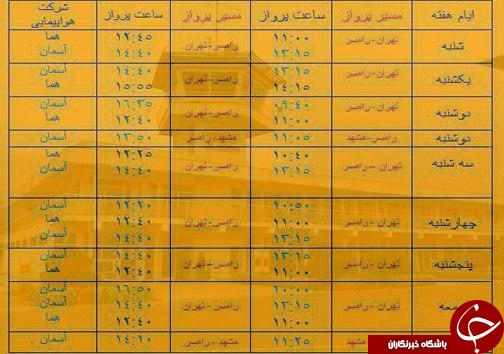 ایام هفته مسیر پرواز ساعت پرواز مسیر پرواز ساعت پرواز شرکت هواپیمایی
شنبه تهران-رامسر ۱۱:۰۰ ۱۳:۱۵ رامسر-تهران ۱۲:۴۵ ۱۴:۴۰ هما آسمان
یکشنبه تهران-رامسر ۱۳:۱۵ ۱۴:۱۵ رامسر-تهران ۱۴:۴۰ ۱۵:۵۵ آسمان هما
دوشنبه تهران-رامسر ۰۹:۴۰ ۱۱:۰۰ رامسر-تهران آسمان هما
دوشنبه رامسر-مشهد ۱۱:۰۵ مشهد-رامسر ۱۳:۵۰ آسمان
سه شنبه تهران-رامسر ۱۰:۴۰ ۱۳:۱۵ رامسر-تهران ۱۲:۲۵ ۱۴:۴۰ هما آسمان
چهارشنبه تهران-رامسر ۱۰:۵۰ ۱۱:۰۰ ۱۳:۱۵ رامسر-تهران ۱۲:۴۰ ۱۴:۴۰ آسمان هما آسمان
پنجشنبه تهران-رامسر ۱۳:۱۵ ۱۱:۰۰ رامسر-تهران ۱۴:۴۰ ۱۲:۴۰ آسمان هما
تهران-رامسر ۱۳:۱۵ ۱۱:۰۰ رامسر-تهران ۱۶:۵۰ ۱۴:۴۰ ۱۲:۴۰ آسمان آسمان هما
۱۱:۲۵ مشهد-رامسر ۱۴:۱۰ آسمان
باشگاه خبرنگاران